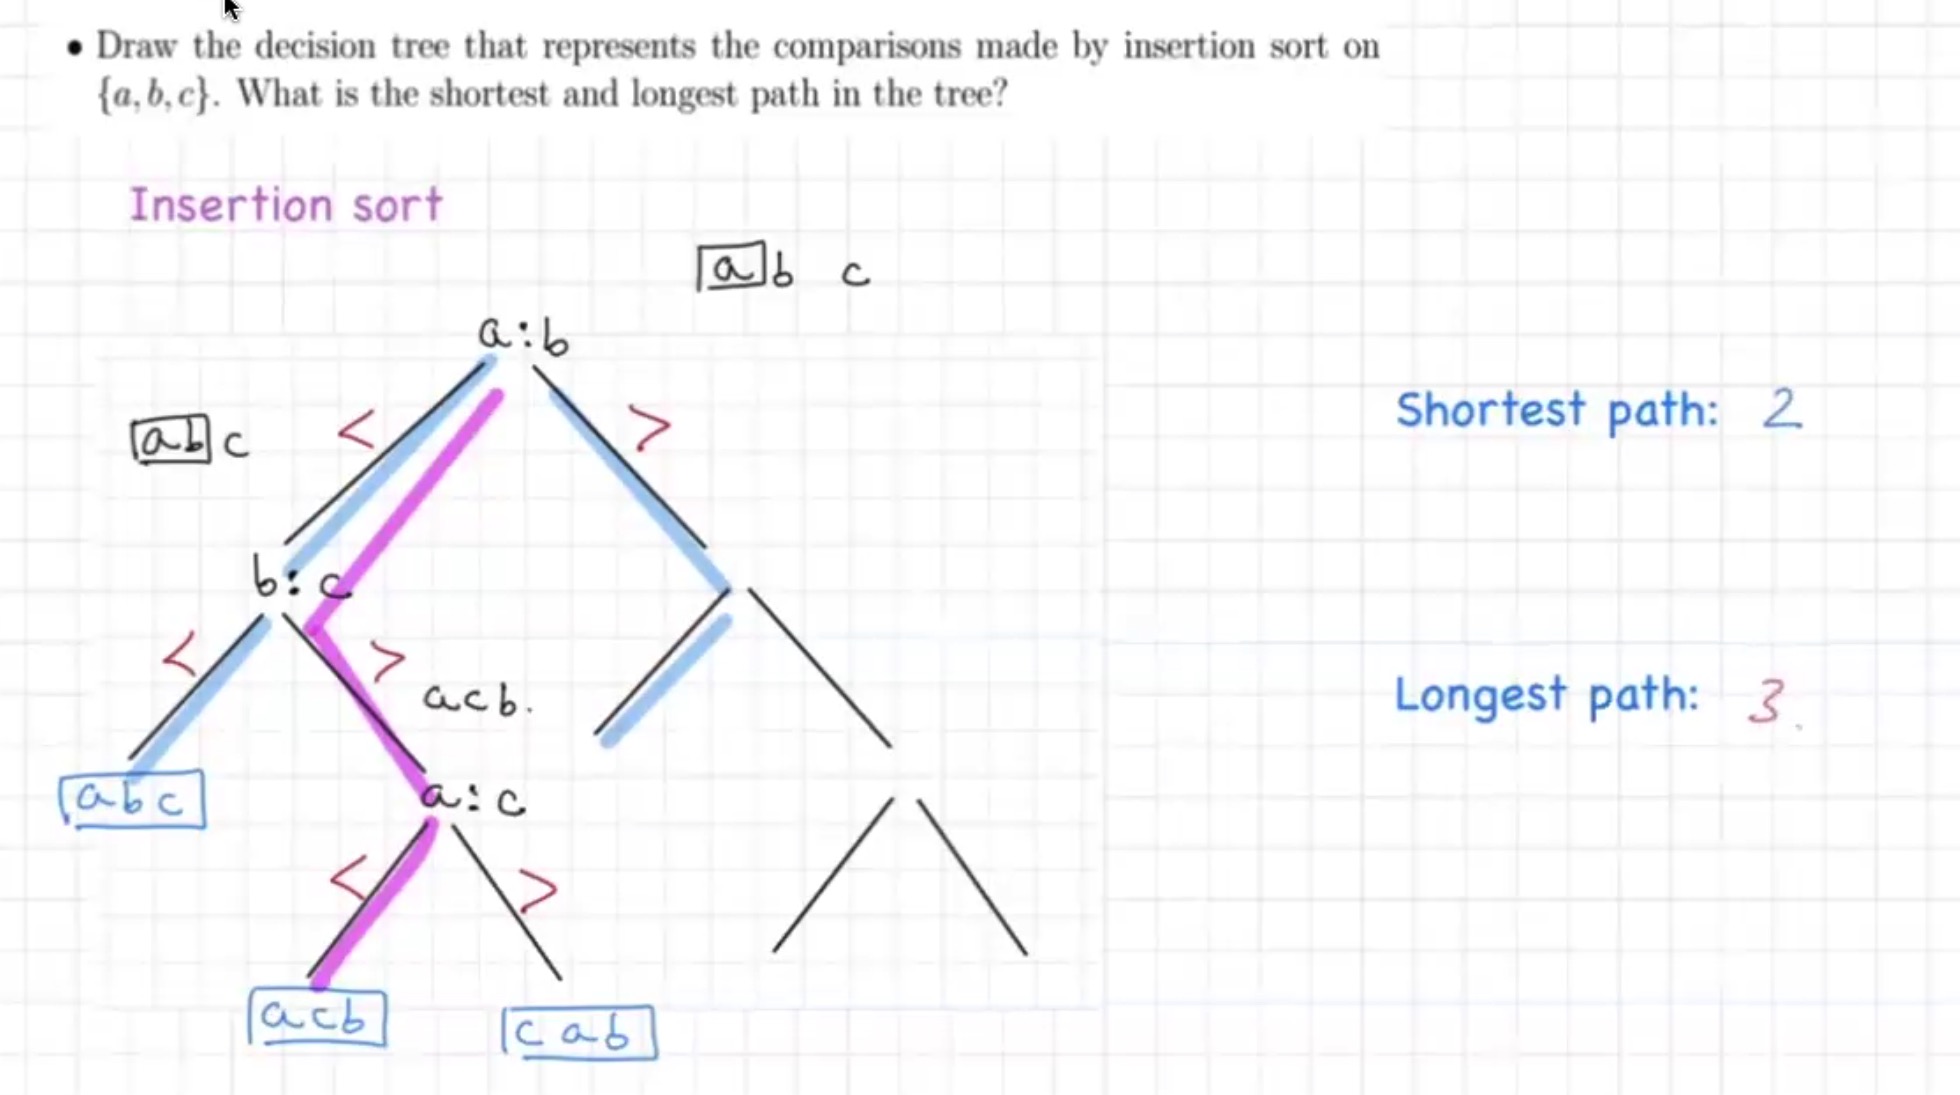 • Draw the decision tree that represents the comparisons made by insertion sort on
{a, b, c}. What is the shortest and longest path in the tree?
Insertion sort
a b c
a:b
< >
a b c
Shortest path: 2
b:c
< >
a c b.
Longest path: 3.
a b c
a:c
< >
a c b
c a b